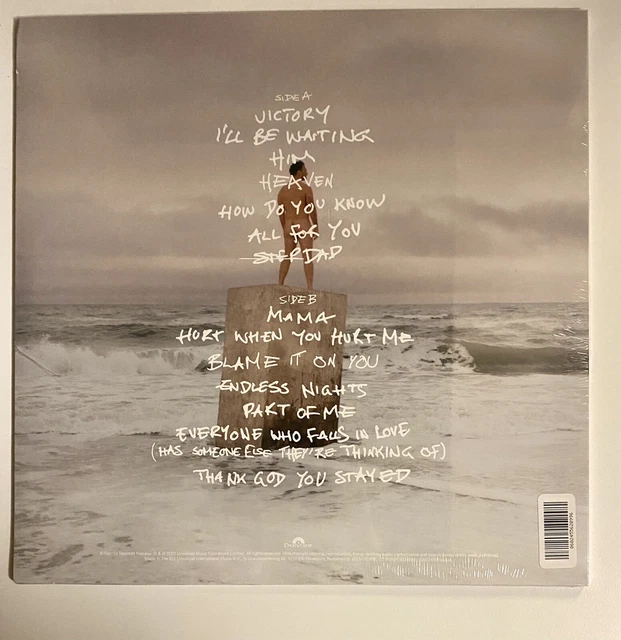 SIDE A
VICTORY
I'LL BE WAITING
HIM
HEAVEN
HOW DO YOU KNOW
ALL FOR YOU
STEPDAD
SIDE B
MAMA
HURT WHEN YOU HURT ME
BLAME IT ON YOU
ENDLESS NIGHTS
PART OF ME
EVERYONE WHO FALLS IN LOVE
(HAS SOMEONE ELSE THEY'RE THINKING OF)
THANK GOD YOU STAYED